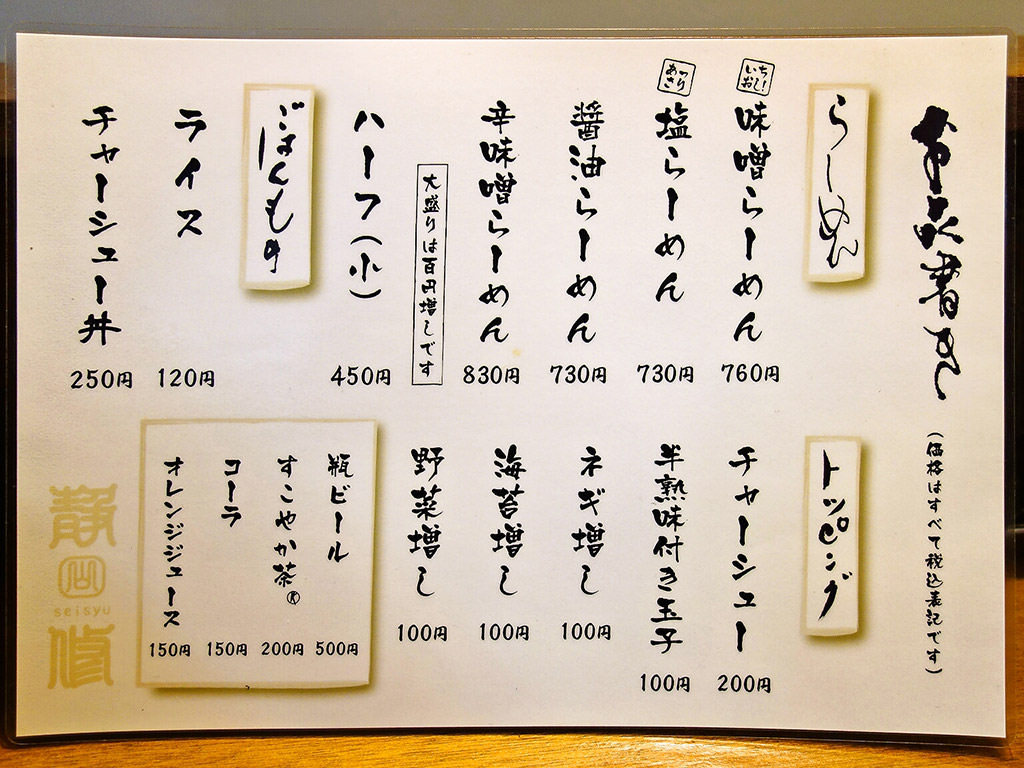 お品書き
(価格はすべて税込表記です)
らーめん
いちおし!
味噌らーめん
760円
あっさり
塩らーめん
730円
醤油らーめん
730円
辛味噌らーめん
830円
大盛りは百円増しです
ハーフ(小)
450円
ごはんもの
ライス
120円
チャーシュー丼
250円
トッピング
チャーシュー
200円
半熟味付き玉子
100円
ネギ増し
100円
海苔増し
100円
野菜増し
100円
瓶ビール
500円
すこやか茶®
200円
コーラ
150円
オレンジジュース
150円
seisyu